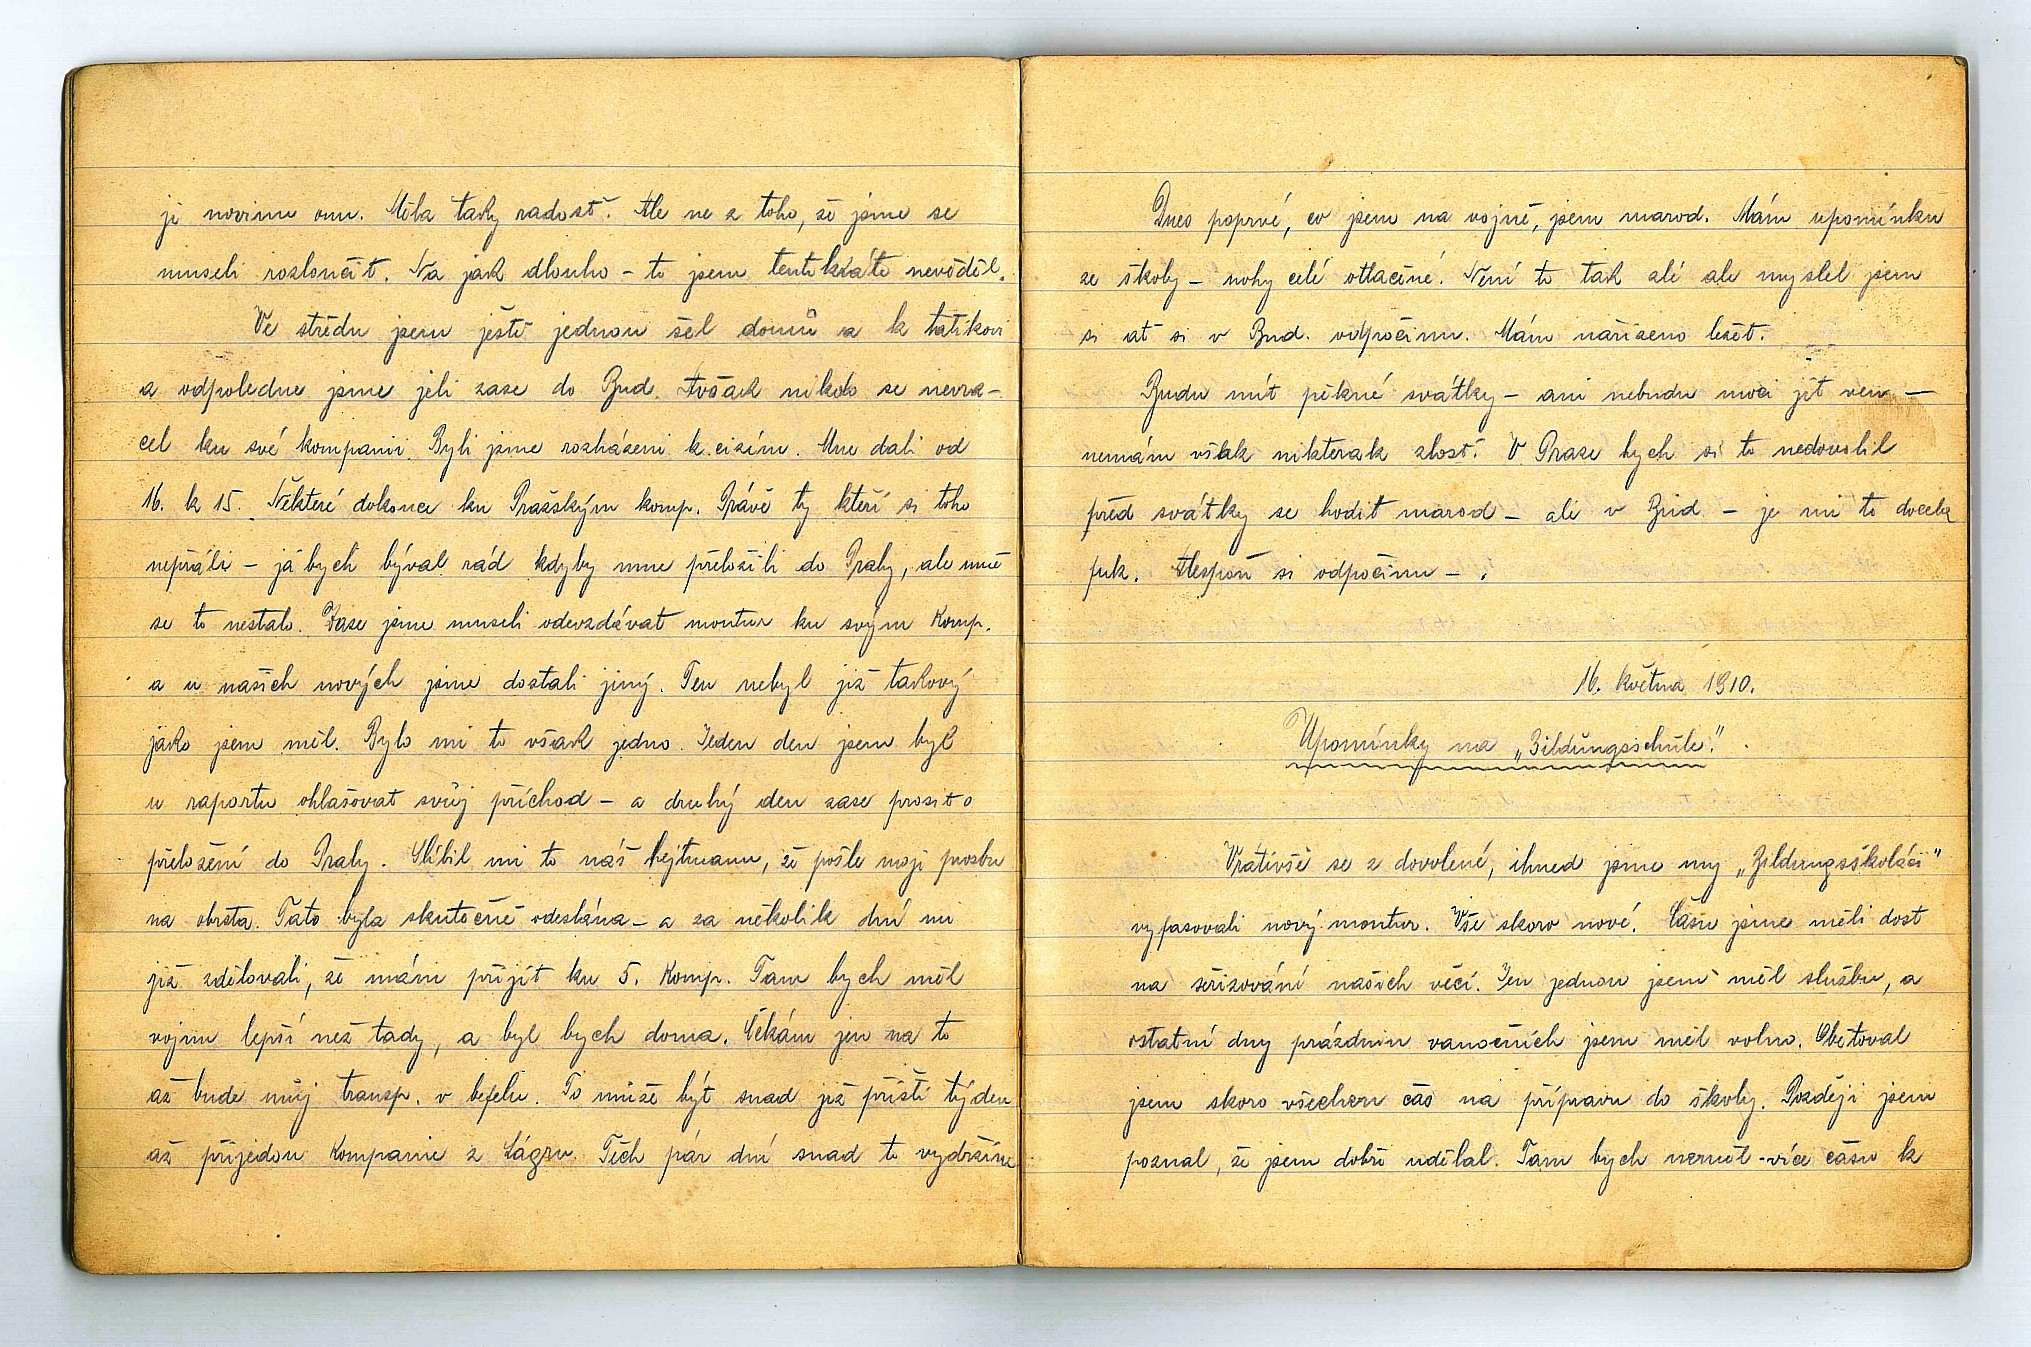 ji novinu onu. Měla taky radost. Ale ne z toho, že jsme se
museli rozloučit. Na jak dlouho – to jsem tentokráte nevěděl.
Ve středu jsem ještě jednou šel domů a k tatíkovi
a odpoledne jsme jeli zase do Bud. Avšak nikdo se nevra-
cel ku své kompanii. Byli jsme rozházeni k cizím. Mne dali od
16. k 15. Některé dokonce ku Pražským komp. Právě ty kteří si toho
nepřáli – já bych býval rád kdyby mne přeložili do Prahy, ale mně
se to nestalo. Zase jsme museli odevzdávat montur ku svým Komp.
a u našich nových jsme dostali jiný. Ten nebyl již takový
jako jsem měl. Bylo mi to však jedno. Jeden den jsem byl
u raportu ohlašovat svůj příchod – a druhý den zase prosit o
přeložení do Prahy. Slíbil mi to náš hejtmann, že pošle moji prosbu
na obrsta. Tato byla skutečně odeslána – a za několik dní mi
již zdělovali, že mám přijít ku 5. Komp. Tam bych měl
vojnu lepší než tady, a byl bych doma. Čekám jen na to
až bude můj transp. v befelu. To může být snad již příští týden
až přijedou Kompanie z Lágru. Těch pár dní snad to vydržíme
Dnes poprvé, co jsem na vojně, jsem marod. Mám upomínku
ze školy – nohy celé otlačené. Není to tak zlé ale myslel jsem
si ať si v Bud. odpočinu. Mám nařízeno ležet.
Budu mít pěkné svátky – ani nebudu moci jít ven —
nemám však nikterak zlost. V Praze bych si to nedovolil
před svátky se hodit marod – ale v Bud – je mi to docela
fuk. Alespoň si odpočinu – .
16. května 1910.
Upomínky na „Bildungsschule".
Vrátivše se z dovolené, ihned jsme my „Bildungsškoláci"
vyfasovali nový montur. Vše skoro nové. Času jsme měli dost
na seřizování našich věcí. Jen jednou jsem měl službu, a
ostatní dny prázdnin vanočních jsem měl volno. Obětoval
jsem skoro všechen čas na přípravu do školy. Později jsem
poznal, že jsem dobře udělal. Tam bych neměl více času k